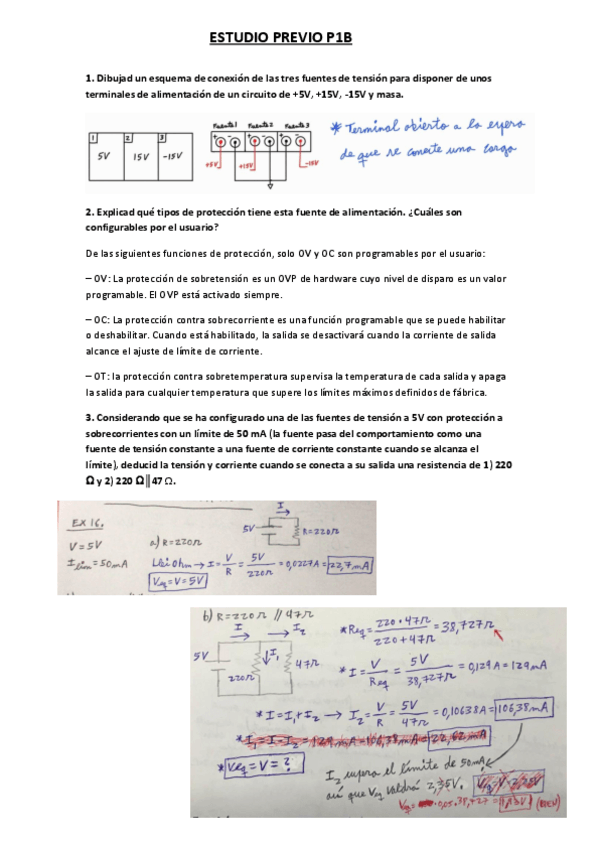 ESTUDIO PREVIO P1B
1. Dibujad un esquema de conexión de las tres fuentes de tensión para disponer de unos
terminales de alimentación de un circuito de +5V, +15V, -15V y masa.
1 2 3
5V 15V -15V
Fuente 1 Fuente 2 Fuente 3
+ - + - + -
+5V +15V -15V
* Terminal abierto a la espera
de que se conecte una carga
2. Explicad qué tipos de protección tiene esta fuente de alimentación. ¿Cuáles son
configurables por el usuario?
De las siguientes funciones de protección, solo OV y OC son programables por el usuario:
– OV: La protección de sobretensión es un OVP de hardware cuyo nivel de disparo es un valor
programable. El OVP está activado siempre.
– OC: La protección contra sobrecorriente es una función programable que se puede habilitar
o deshabilitar. Cuando está habilitado, la salida se desactivará cuando la corriente de salida
alcance el ajuste de límite de corriente.
– OT: la protección contra sobretemperatura supervisa la temperatura de cada salida y apaga
la salida para cualquier temperatura que supere los límites máximos definidos de fábrica.
3. Considerando que se ha configurado una de las fuentes de tensión a 5V con protección a
sobrecorrientes con un límite de 50 mA (la fuente pasa del comportamiento como una
fuente de tensión constante a una fuente de corriente constante cuando se alcanza el
límite), deducid la tensión y corriente cuando se conecta a su salida una resistencia de 1) 220
Ω y 2) 220 Ω||47 Ω.
EX 16.
V = 5V
I lim = 50mA
a) R = 220Ω
I
5V
R = 220Ω
Llei Ohm → I = V/R = 5V/220Ω = 0,0227A = 22,7mA
Veq = V = 5V
b) R = 220Ω // 47Ω
I I2
5V I1 220Ω 47Ω
* Req = 220·47Ω/220+47Ω = 38,727Ω
* I = V/Req = 5V/38,727Ω = 0,129A = 129mA
* I = I1 + I2 → I2 = V/R = 5V/47Ω = 0,10638A = 106,38mA
* I1 = I - I2 = 129mA - 106,38mA = 22,62mA
* Veq = V = ?
I2 supera el límite de 50mA,
así que Veq valdrá 2,35V.
Veq = 0,05·38,727 = 1,93V (BIEN)